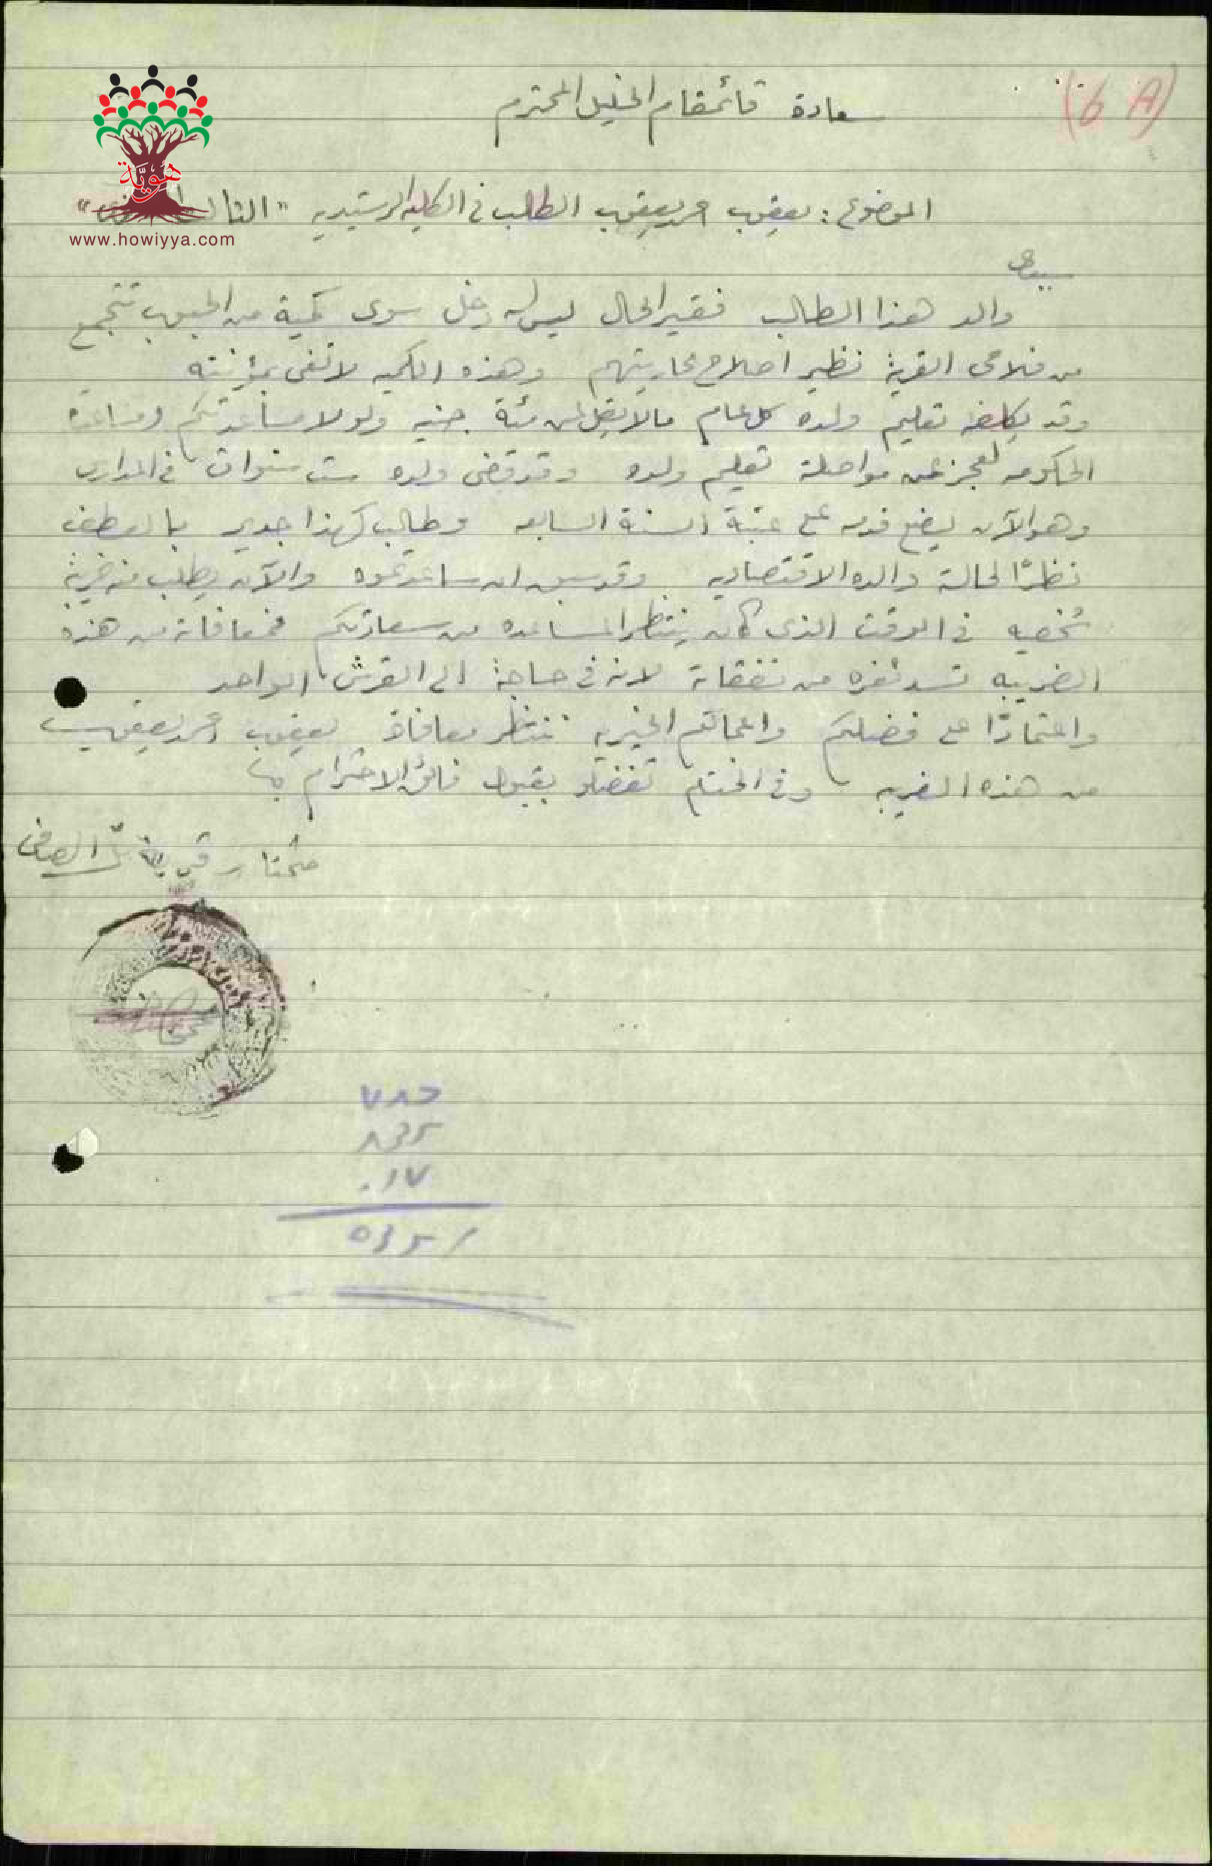 (6 A)
سعادة قائمقام الخليل المحترم
الموضوع: يعقوب محمد يعقوب الطالب في الكليه الرشيديه "الثالث
سيدي
والد هذا الطالب فقير الحال ليس له دخل سوى كمية من الحبوب تتجمع
من فلاحي القرية نظير اصلاح محاريثهم وهذه الكميه لا تفى بمؤنته
وقد يكلفه تعليم ولده كل عام ما لا يقل عن مئة جنيه ولولا مساعدتكم ومساعدة
الحكومه لعجز عن مواصلة تعليم ولده وقد قضى ولده ست سنوات في المدارس
وهو الآن يضع قدمه على عتبة السنة السابعه وطالب كهذا جدير بالعطف
نظرًا لحالة والده الاقتصاديه وقد سبق ان ساعدتموه والآن يطلب منه ضريبة
شخصيه في الوقت الذى كان ينتظر المساعده من سعادتكم فمعافاته من هذه
الضريبه تسد ثغره من نفقاته لانه في حاجة الى القرش الواحد
واعتمادًا على فضلكم واعمالكم الخيريه ننتظر معافاة يعقوب محمد يعقوب
من هذه الضريبه وفي الختام تفضلو بقبول فائق الاحترام
مختار قرية تل الصافى
هويّة
www.howiyya.com